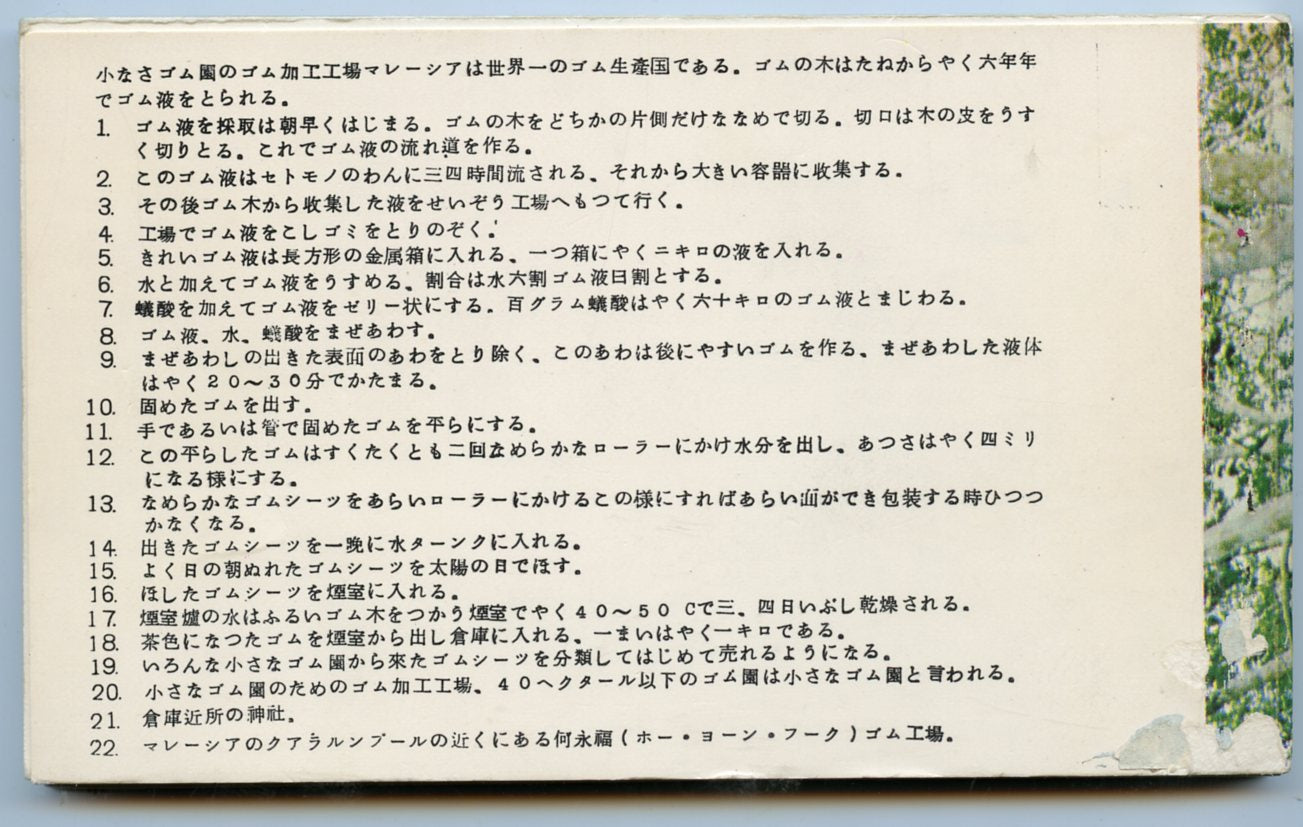 小なさゴム園のゴム加工工場マレーシアは世界一のゴム生産国である。ゴムの木はたねからやく六年年
でゴム液をとられる。
1. ゴム液を採取は朝早くはじまる。ゴムの木をどちかの片側だけななめで切る。切口は木の皮をうす
く切りとる。これでゴム液の流れ道を作る。
2. このゴム液はセトモノのわんに三四時間流される、それから大きい容器に収集する。
3. その後ゴム木から收集した液をせいぞう工場へもつて行く。
4. 工場でゴム液をこしゴミをとりのぞく。
5. きれいゴム液は長方形の金属箱に入れる、一つ箱にやくニキロの液を入れる。
6. 水と加えてゴム液をうすめる、割合は水六割ゴム液日割とする。
7. 蟻酸を加えてゴム液をゼリー状にする。百グラム蟻酸はやく六十キロのゴム液とまじわる。
8. ゴム液、水、蟻酸をまぜあわす。
9. まぜあわしの出きた表面のあわをとり除く、このあわは後にやすいゴムを作る、まぜあわした液体
はやく20〜30分でかたまる。
10. 固めたゴムを出す。
11. 手であるいは管で固めたゴムを平らにする。
12. この平らしたゴムはすくたくとも二回なめらかなローラーにかけ水分を出し、あつさはやく四ミリ
になる様にする。
13. なめらかなゴムシーツをあらいローラーにかけるこの様にすればあらい面ができ包装する時ひつつ
かなくなる。
14. 出きたゴムシーツを一晩に水ターンクに入れる。
15. よく日の朝ぬれたゴムシーツを太陽の日でほす。
16. ほしたゴムシーツを煙室に入れる。
17. 煙室爐の水はふるいゴム木をつかう煙室でやく40〜50 Cで三、四日いぶし乾燥される。
18. 茶色になつたゴムを煙室から出し倉庫に入れる、一まいはやく一キロである。
19. いろんな小さなゴム園から來たゴムシーツを分類してはじめて売れるようになる。
20. 小さなゴム園のためのゴム加工工場、40ヘクタール以下のゴム園は小さなゴム園と言われる。
21. 倉庫近所の神社。
22. マレーシアのクアラルンプールの近くにある何永福(ホー・ヨーン・フーク)ゴム工場。